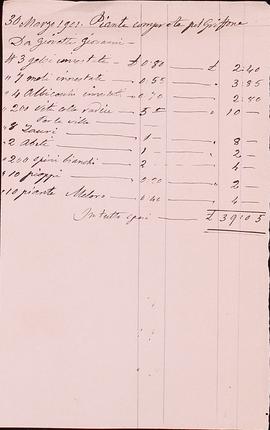 30 Marzo 1901. Piante comprate pel Griffone
Da Giovatti Giovanni —
N 3 gelsi innestate — £ 0:80 — £ 2-40
" 7 meli innestate — 0:55 — " 3:85
" 4 Albicocchi innestati — 0:70 — " 2:80
" 200 Viti colla radice — 5- — " 10 —
Per la villa
" 8 Lauri — 1 — — " 8 —
" 2 Abeti — 1 — " 2 —
" 200 spini bianchi — 2 — " 4 —
" 10 pioppi — 0:20 — " 2 —
" 10 piante — 0:40 — " 4 —
In tutto £ 39:05